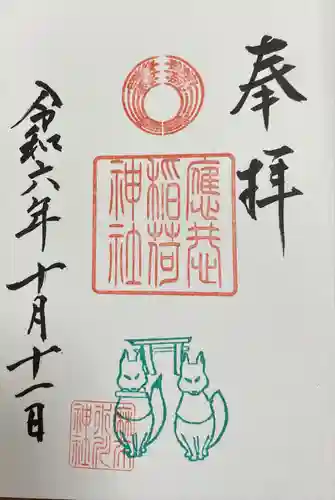 奉拝
稲荷
神社
神社
令和六年十月十一日